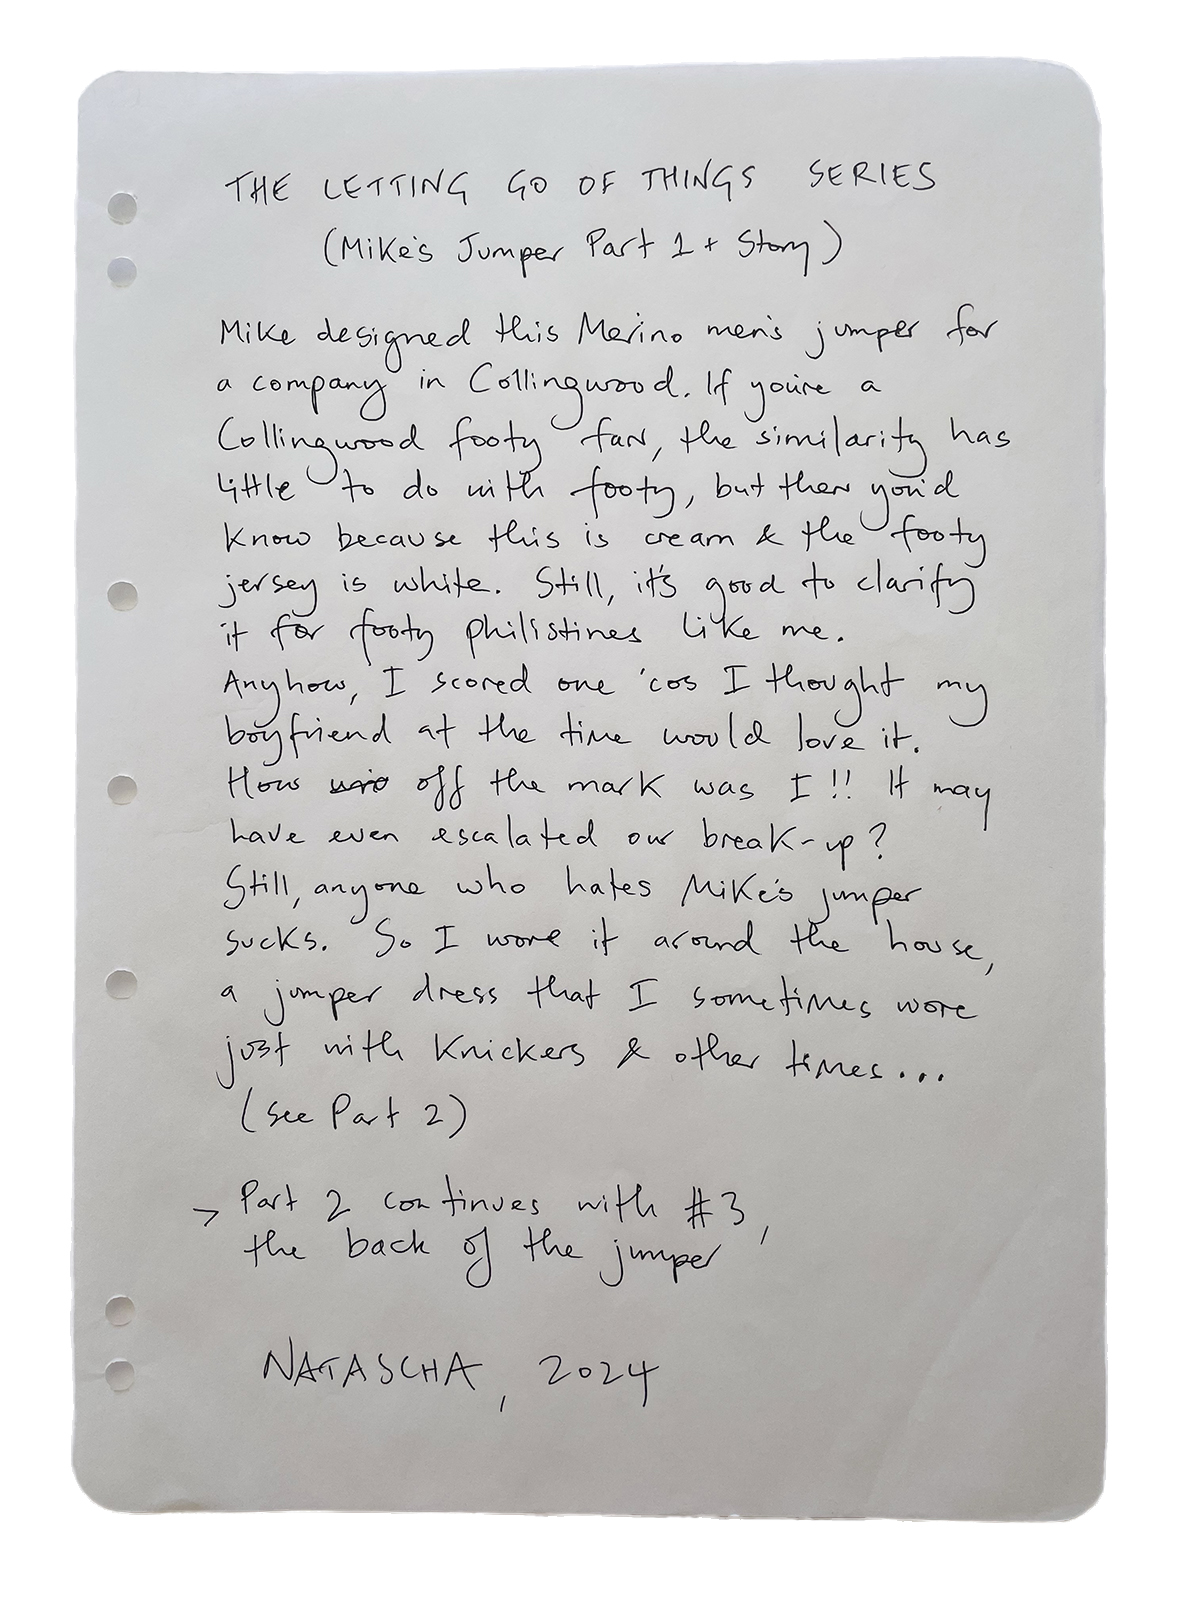 THE LETTING GO OF THINGS SERIES
(Mike's Jumper Part 1 + Story)
Mike designed this Merino men's jumper for
a company in Collingwood. If you're a
Collingwood footy fan, the similarity has
little to do with footy, but then you'd
know because this is cream & the footy
jersey is white. Still, it's good to clarify
it for footy philistines like me.
Anyhow, I scored one 'cos I thought my
boyfriend at the time would love it.
How off the mark was I!! It may
have even escalated our break-up?
Still, anyone who hates Mike's jumper
sucks. So I wore it around the house,
a jumper dress that I sometimes wore
just with knickers & other times...
(see Part 2)
> Part 2 continues with #3,
the back of the jumper
NATASCHA, 2024